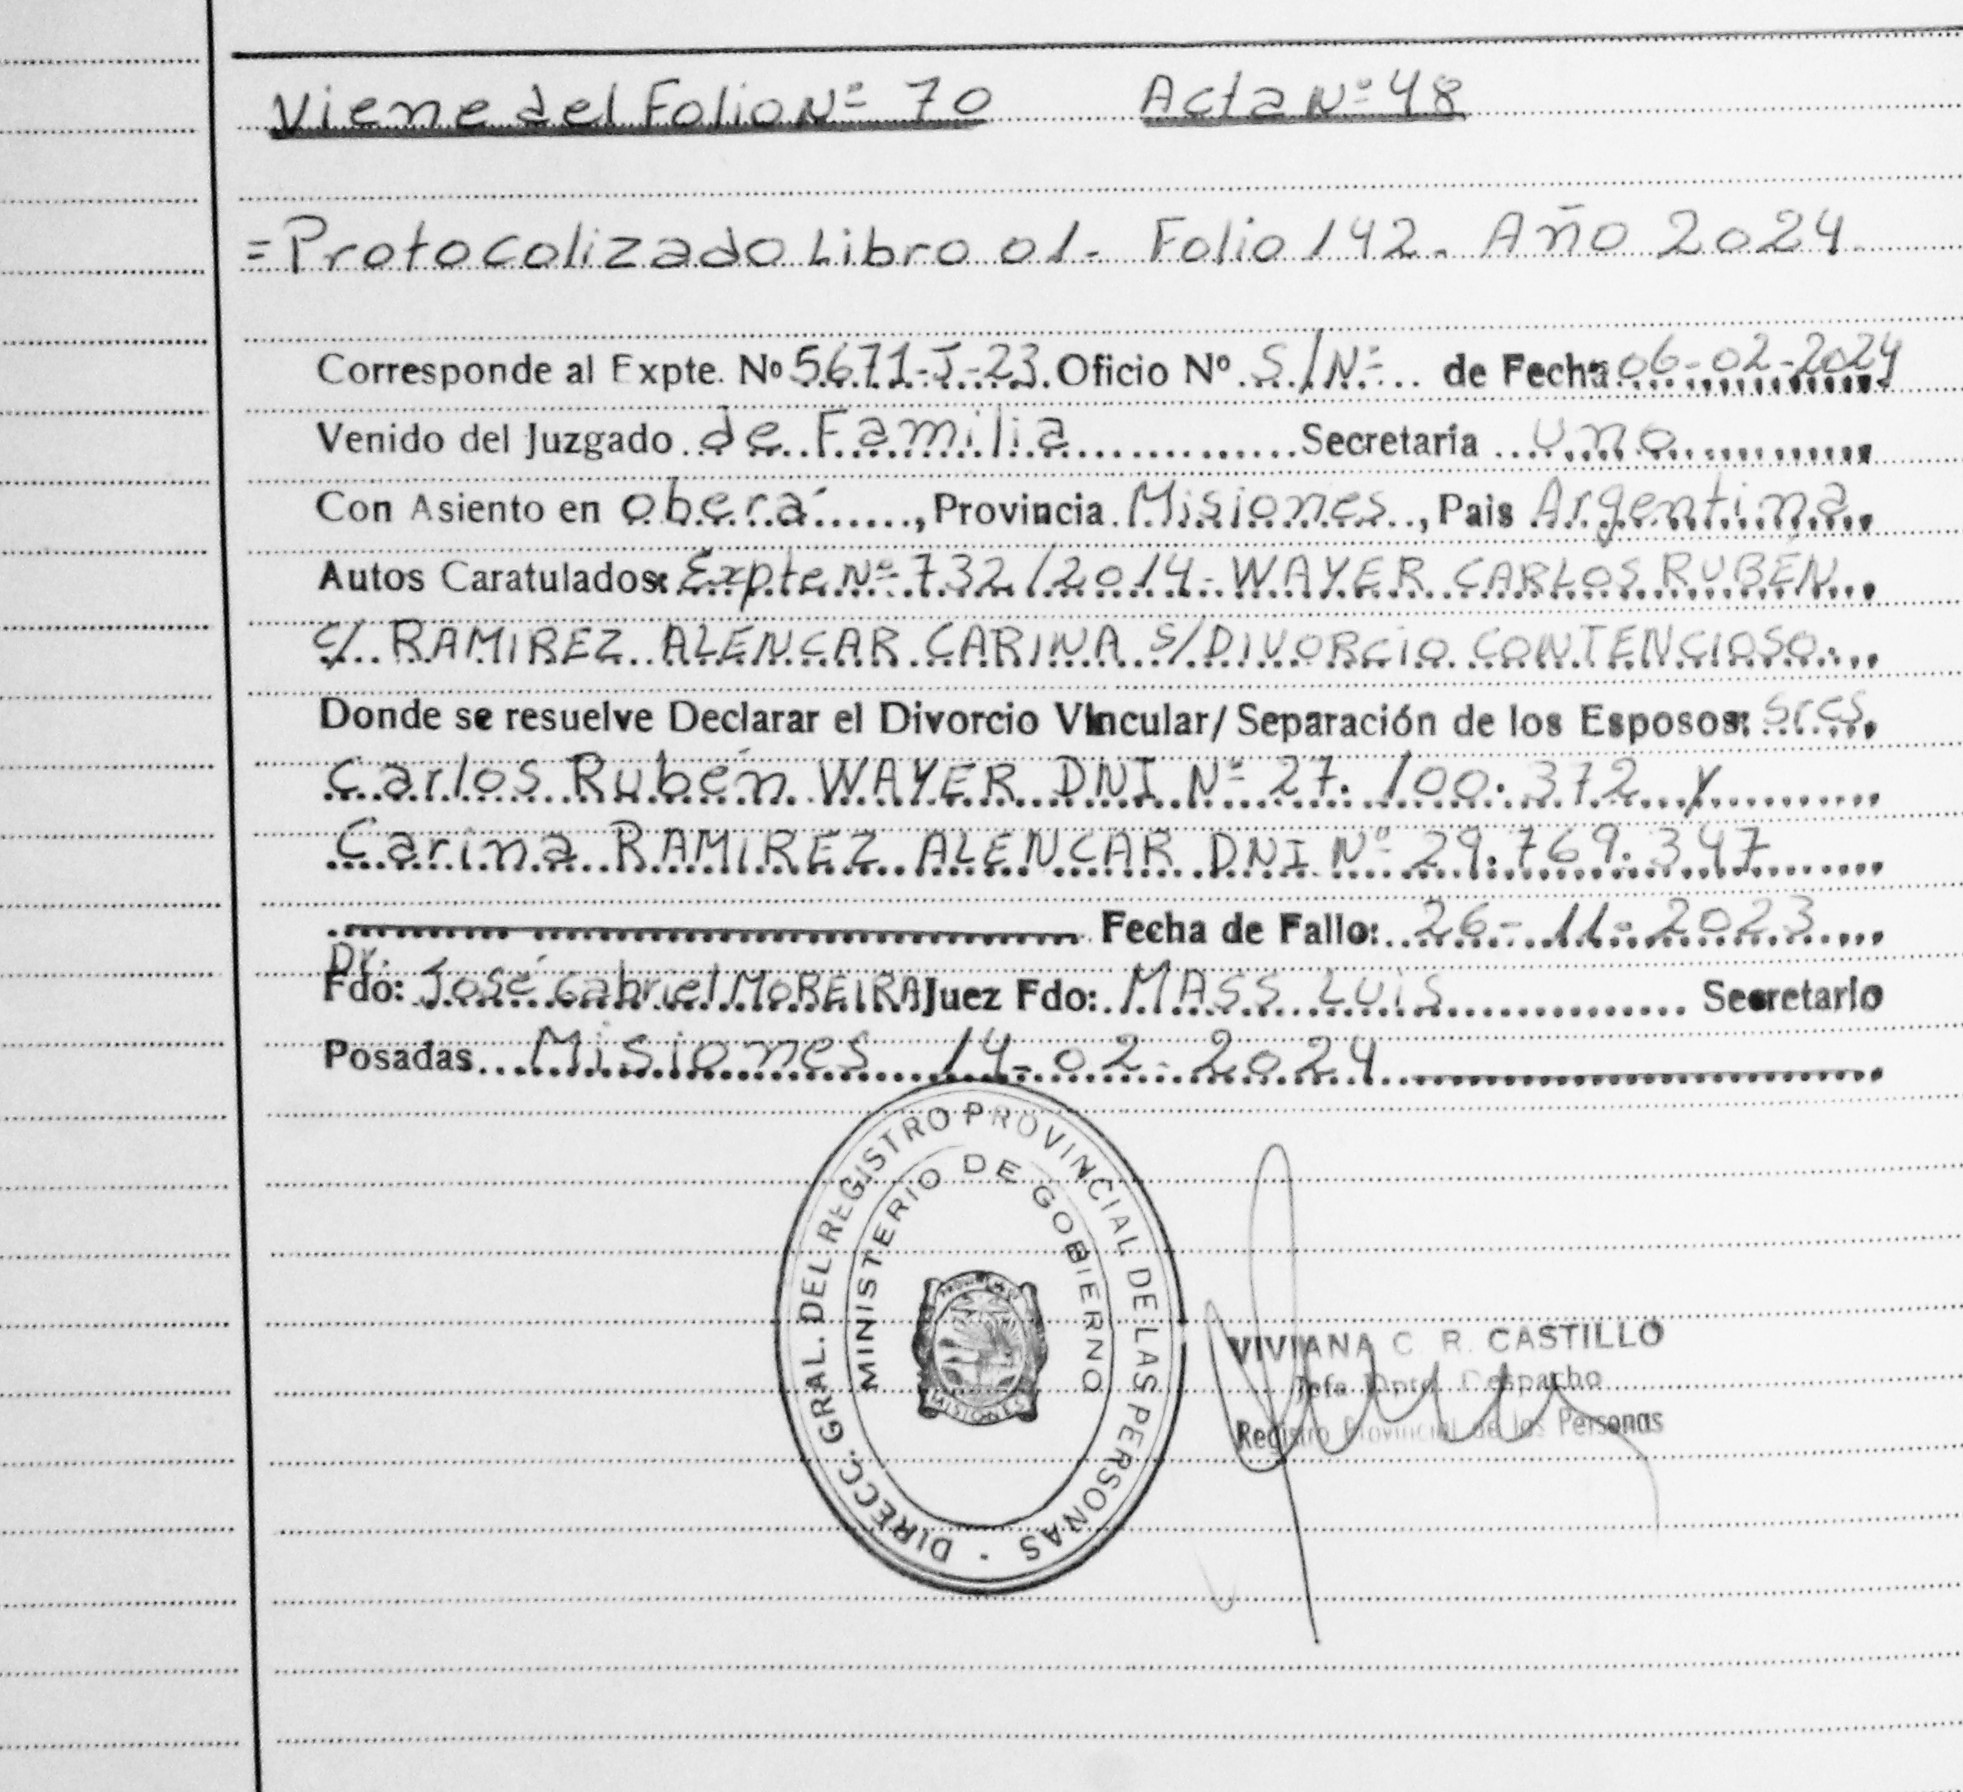 Viene del Folio Nº 70 Acta Nº 48
=Protocolizado Libro 01- Folio 142- Año 2024
Corresponde al Expte. Nº 5671-J-23. Oficio Nº S/Nº de Fecha 06-02-2024
Venido del Juzgado de Familia Secretaria Uno
Con Asiento en oberá, Provincia Misiones, Pais Argentina
Autos Caratulados: Expte Nº 732/2014- WAYER CARLOS RUBÉN
C/ RAMIREZ ALENCAR CARINA S/DIVORCIO CONTENCIOSO
Donde se resuelve Declarar el Divorcio Vincular/ Separación de los Esposos: Sres
Carlos Rubén WAYER DNI Nº 27.100.372 y
Carina RAMIREZ ALENCAR DNI Nº 29.769.347
Fecha de Fallo: 26-11-2023
Dr.
Fdo: José Gabriel MOREIRA Juez Fdo: MASS LUIS Secretario
Posadas Misiones 14-02-2024
DIRECC. GRAL. DEL REGISTRO PROVINCIAL DE LAS PERSONAS
MINISTERIO DE GOBIERNO
MISIONES
VIVIANA C. R. CASTILLO
Jefa Dpto. Despacho
Registro Provincial de las Personas